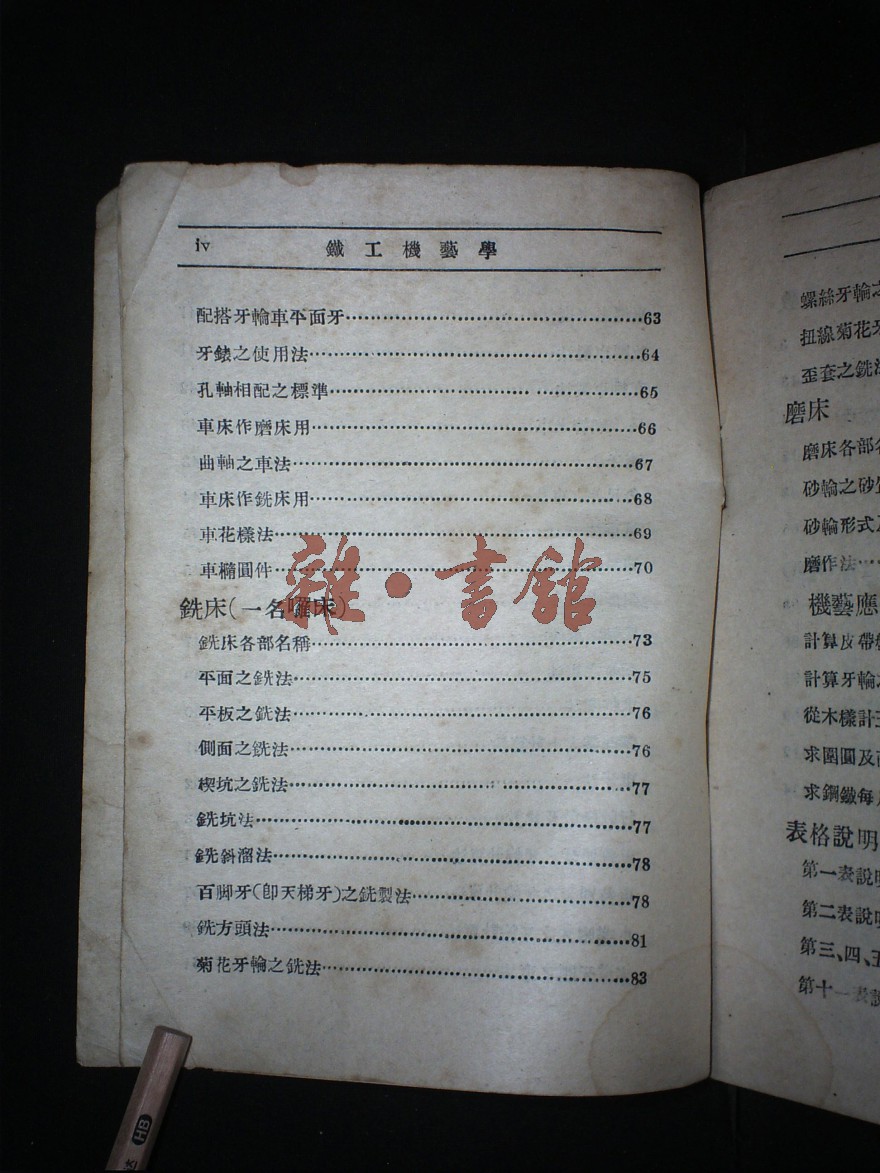 iv 鐵工機藝學
配搭牙輪車平面牙……63
牙錶之使用法……64
孔軸相配之標準……65
車床作磨床用……66
曲軸之車法……67
車床作銑床用……68
車花樣法……69
車橢圓件……70
銑床(一名囉床)
銑床各部名稱……73
平面之銑法……75
平板之銑法……76
側面之銑法……76
楔坑之銑法……77
銑坑法……77
銑斜溜法……78
百脚牙(卽天梯牙)之銑製法……78
銑方頭法……81
菊花牙輪之銑法……83
雜·書館
HB
螺絲牙輪之
扭線菊花牙
歪套之銑法
磨床
磨床各部名
砂輪之砂
砂輪形式及
磨作法……
機藝應
計算皮帶
計算牙輪之
從木樣計
求圍圓及
求鋼鐵每
表格說明
第一表說明
第二表說明
第三、四、五
第十一表說